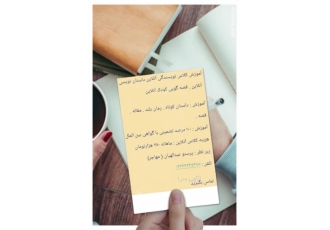 آموزش کلاس نویسندگی آنلاین داستان نویسی
آنلاین ، قصه گویی کودک آنلاین
آموزش : داستان کوتاه ، رمان بلند ، مقاله ،
قصه
آموزش ۱۰۰ درصد تضمینی با گواهی بین المللی
هزینه کلاس آنلاین : ماهانه ۲۵۰ هزارتومان
زیر نظر : پریسو عبدالهیان ( مهاجر)
تلفن :
تماس بگیرید